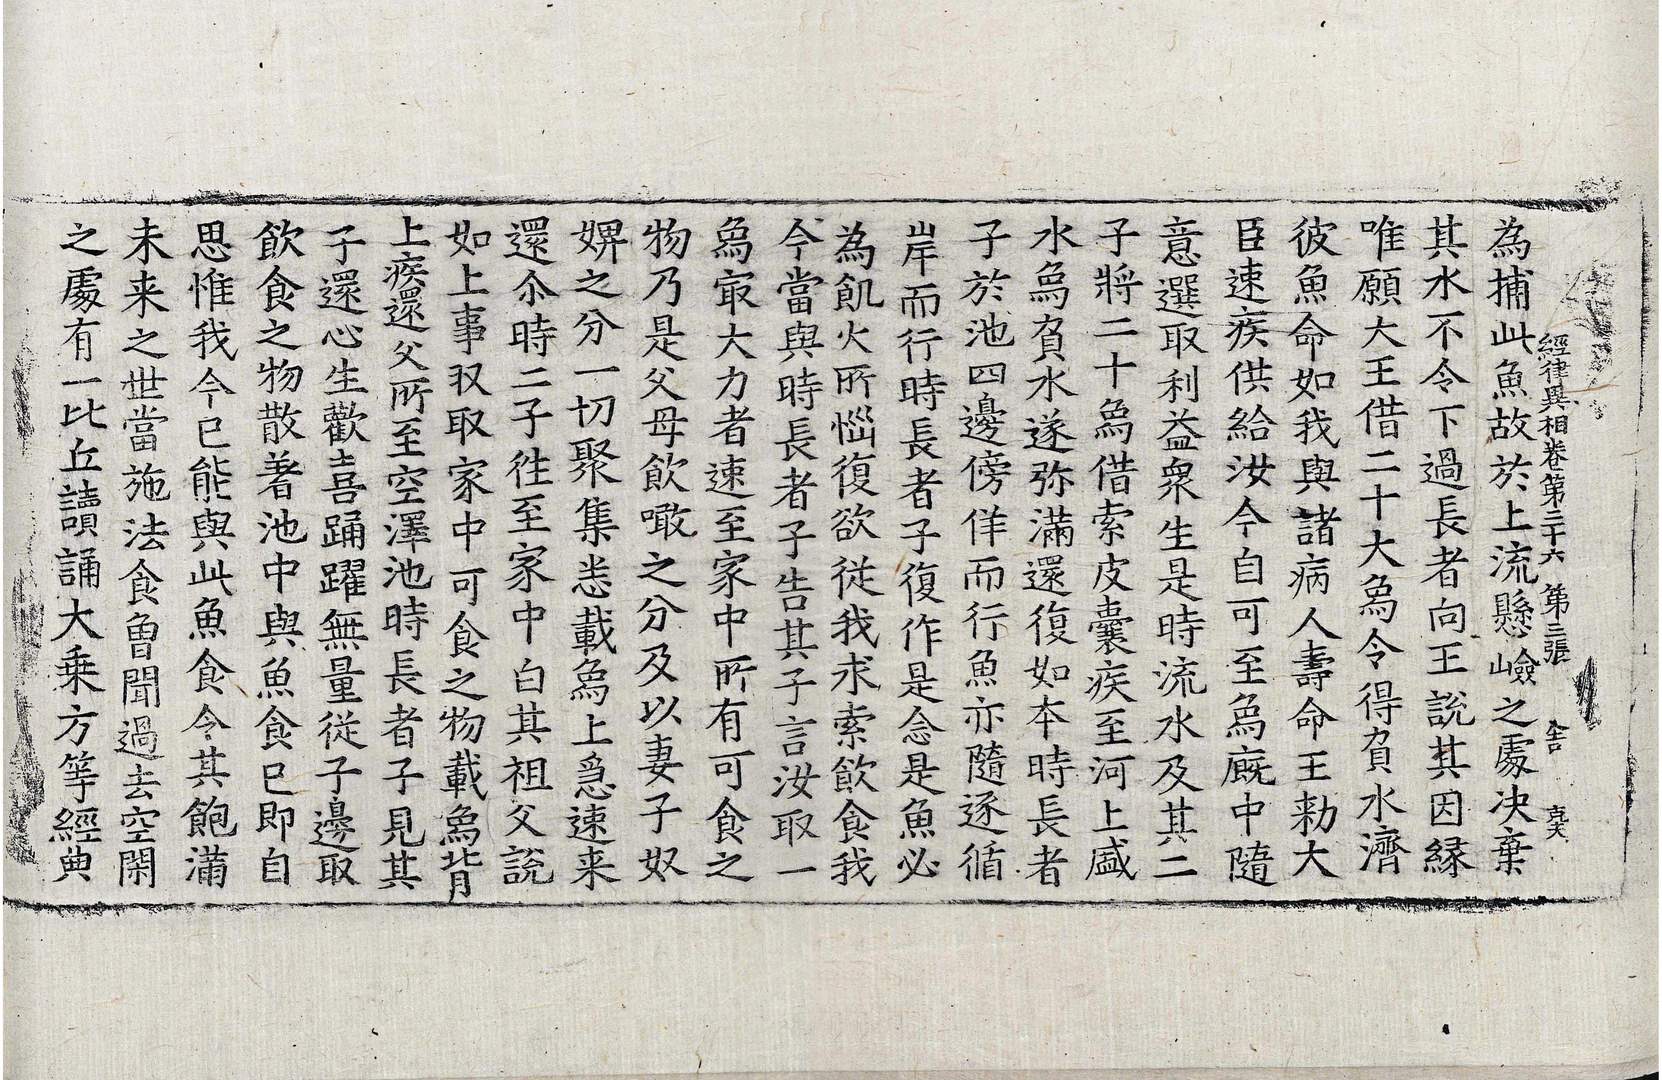 經律異相卷第三十六 第三張 舍
為捕此魚故於上流懸嶮之處决棄
其水不令下過長者向王說其因縁
唯願大王借二十大烏令得負水濟
彼魚命如我與諸病人壽命王勑大
臣速疾供給汝今自可至烏廐中隨
意選取利益衆生是時流水及其二
子將二十烏借索皮囊疾至河上盛
水烏負水遂弥滿還復如本時長者
子於池四邊傍徉而行魚亦隨逐循
岸而行時長者子復作是念是魚必
為飢火所惱復欲從我求索飲食我
今當與時長者子告其子言汝取一
烏㝡大力者速至家中所有可食之
物乃是父母飲噉之分及以妻子奴
婢之分一切聚集悉載烏上急速来
還尒時二子往至家中白其祖父說
如上事収取家中可食之物載烏背
上疾還父所至空澤池時長者子見其
子還心生歡喜踊躍無量從子邊取
飲食之物散著池中與魚食已即自
思惟我今已能與此魚食令其飽滿
未来之世當施法食曾聞過去空閑
之處有一比丘讀誦大乗方等經典